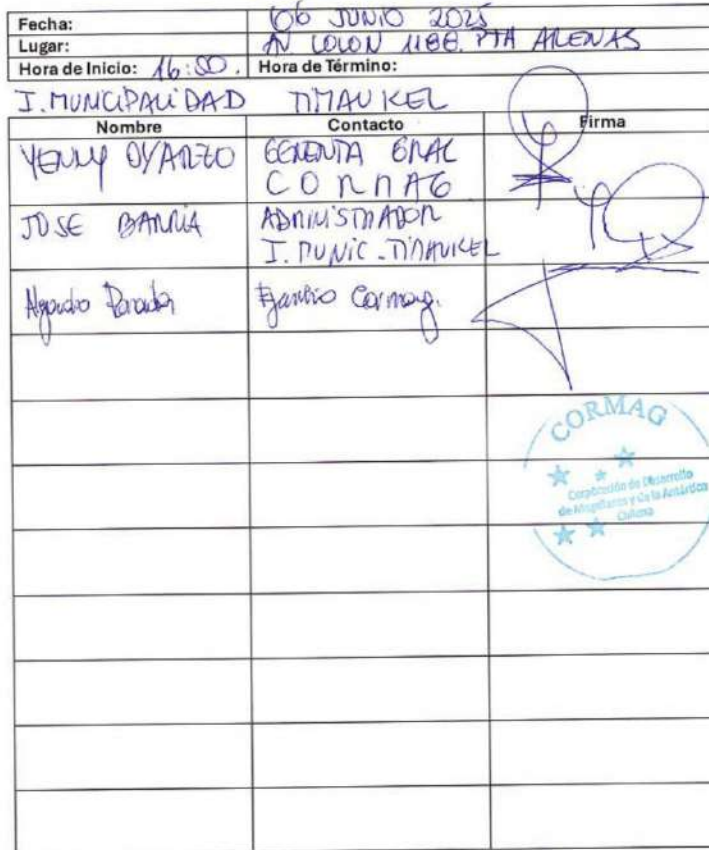 Fecha: 06 JUNIO 2025
Lugar: AV COLON 1188. PTA ARENAS
Hora de Inicio: 16:00. Hora de Término:
I. MUNICIPALIDAD TIMAUKEL
Nombre Contacto Firma
YENNY OYARZO GERENTA GRAL
CORMAG
JOSE BARRIA ADMINISTRADOR
I. MUNIC. TIMAUKEL
Cormag.
CORMAG
Corporación de Desarrollo
de Magallanes y de la Antártica
Chilena